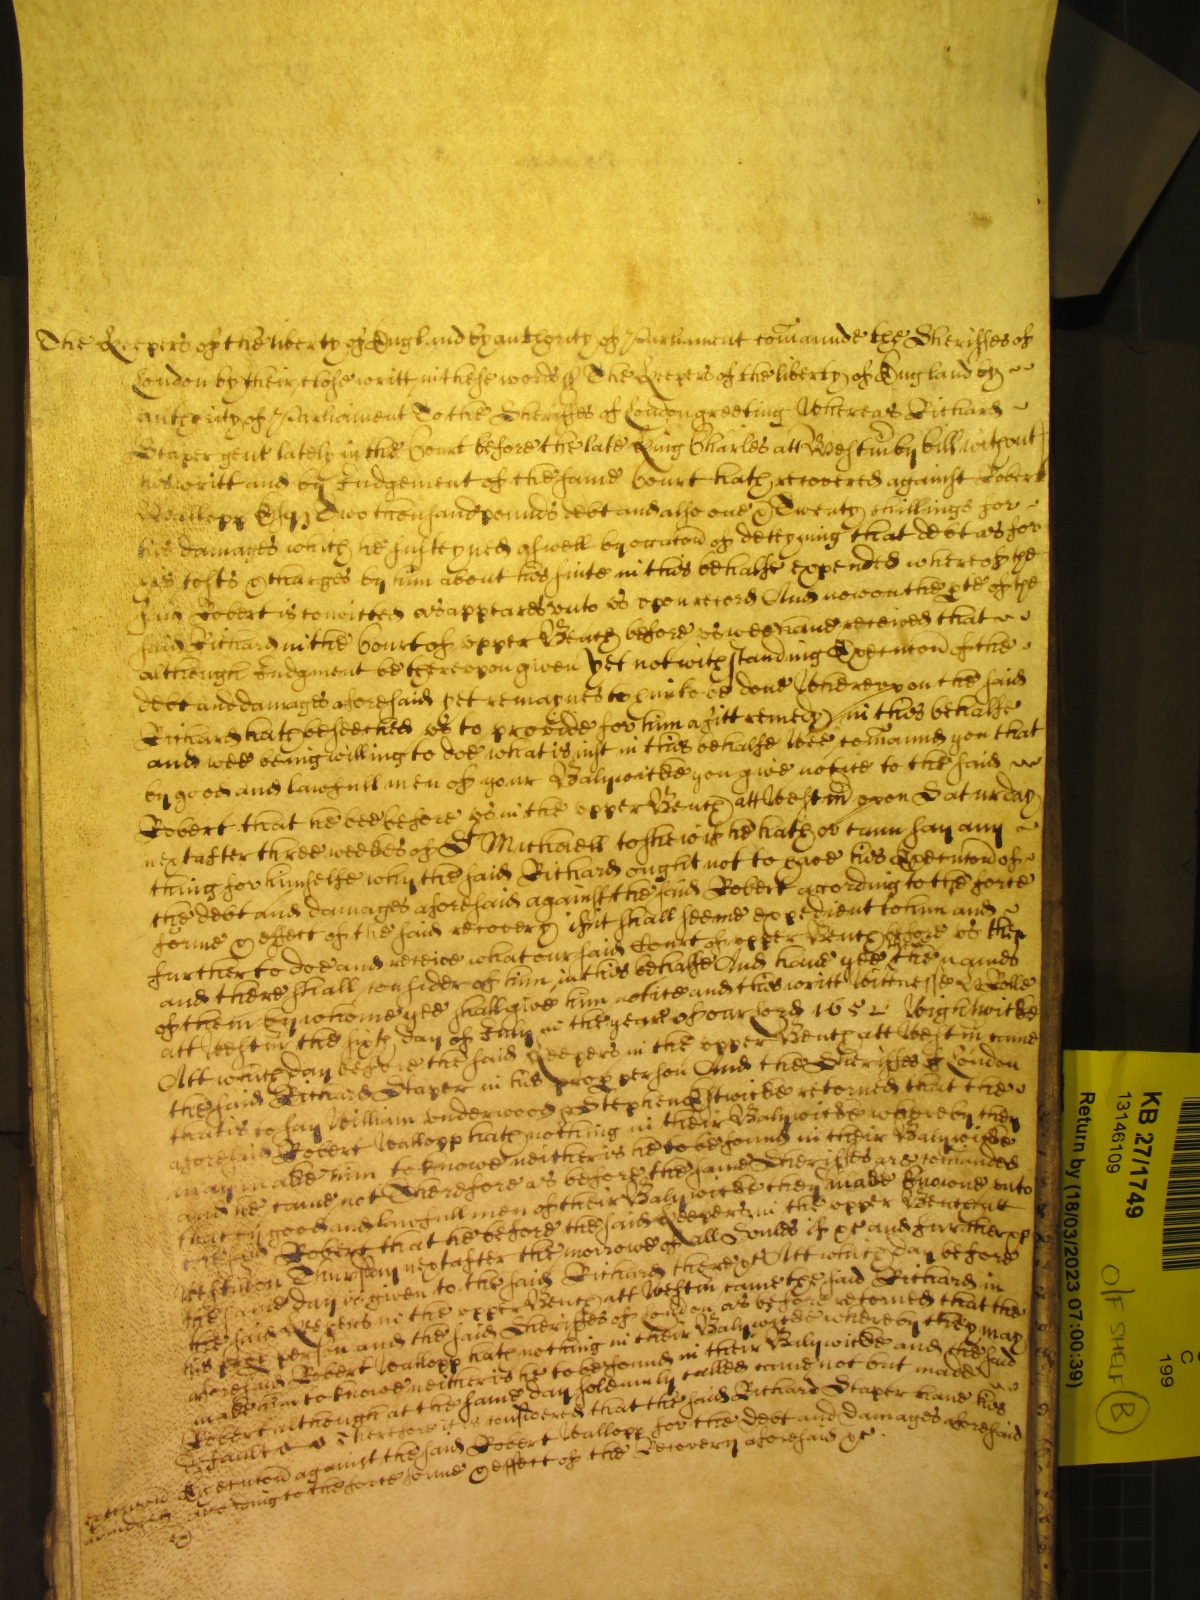 The Keepers of the liberty of England by authority of Parliament comaunde the Sheriffes of
London by their close writt in these words ss The Keepers of the liberty of England by
authority of Parliament To the Sheriffes of London greeting Whereas Richard
Staper gent lately in the Court before the late King Charles att Westm by bill without
his writt and by Judgement of the same Court hath recovered against Robert
Wallopp Esqr Two thousand pounds debt and also one & Twenty shillings for
his damages which he susteyned aswell by occacon of deteyning that debt as for
his costs & charges by him about his suite in this behalfe expended whereof the
said Robert is convicted as appeares unto us upon record And now on the pte of the
said Richard in the Court of upper Bench before us wee have received that
although Judgment be thereupon given yet notwithstanding Execucon of the
debt and damages aforesaid yet remaynes to him to be done Whereupon the said
Richard hath beseeched us to provide for him a fitt remedy in this behalfe
and wee being willing to doe what is just in this behalfe Wee comaund you that
by good and lawfull men of your Baliwicke you give notice to the said
Robert that he bee before us in the upper Bench att Westm upon Saturday
next after three weekes of St Michaell to shew if he hath or cann say any
thing for himselfe why the said Richard ought not to have his Execucon of
the debt and damages aforesaid against the said Robert acording to the force
forme & effect of the said recovery if it shall seeme expedient to him and
further to doe and receive what our said Court of upper Bench before us then
and there shall consider of him in this behalfe And have yee there the names
of them by whome yee shall give him notice and this writt Wittnesse H Rolle
att Westm the sixth day of July in the yeare of our Lord 1652 Wightwicke
Att which day before the said Keepers in the upper Bench att Westm came
the said Richard Staper in his prop person And the Sheriffes of London
that is to say William Underwood & Stephen Estwicke retorned that the
aforesaid Robert Wallopp hath nothing in their Baliwicke whereby they
may make him to knowe neither is he to be found in their Baliwicke
and he came not Therefore as before the same Sheriffes are comanded
that by good and lawfull men of their Baliwicke they make knowne unto
the said Robert that he be before the said Keepers in the upper Bench att
Westm on Thursday next after the morrowe of all Soules if &c and further &c
the same day is given to the said Richard there &c Att which day before
the said Keepers in the upper Bench att Westm came the said Richard in
his prop person and the said Sheriffes of London as before retorned that the
aforesaid Robert Wallopp hath nothing in their Baliwicke whereby they may
make him to knowe neither is he to be found in their Baliwicke and the said
Robert although at the same day solemnly called came not but made
default Therefore it is considered that the said Richard Staper have his
Execucon against the said Robert Wallopp for the debt and damages aforesaid
according to the force forme & effect of the Recovery aforesaid &c
KB 27/1749
13146109
Return by (18/03/2023 07:00:39)
O/F SHELF B
C
199